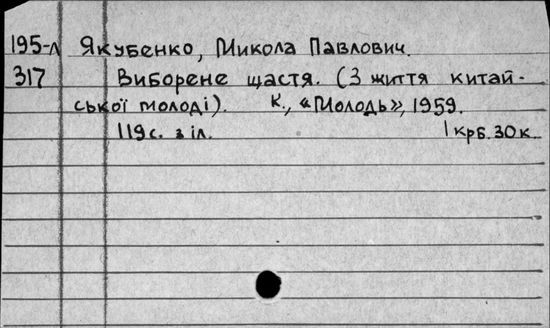 195-л Якубенко, Микола Павлович.
317 Виборене щастя. (З життя китай-
ської молоді). К., «Молодь», 1959.
119 с. з іл. 1 крб. 30 к.